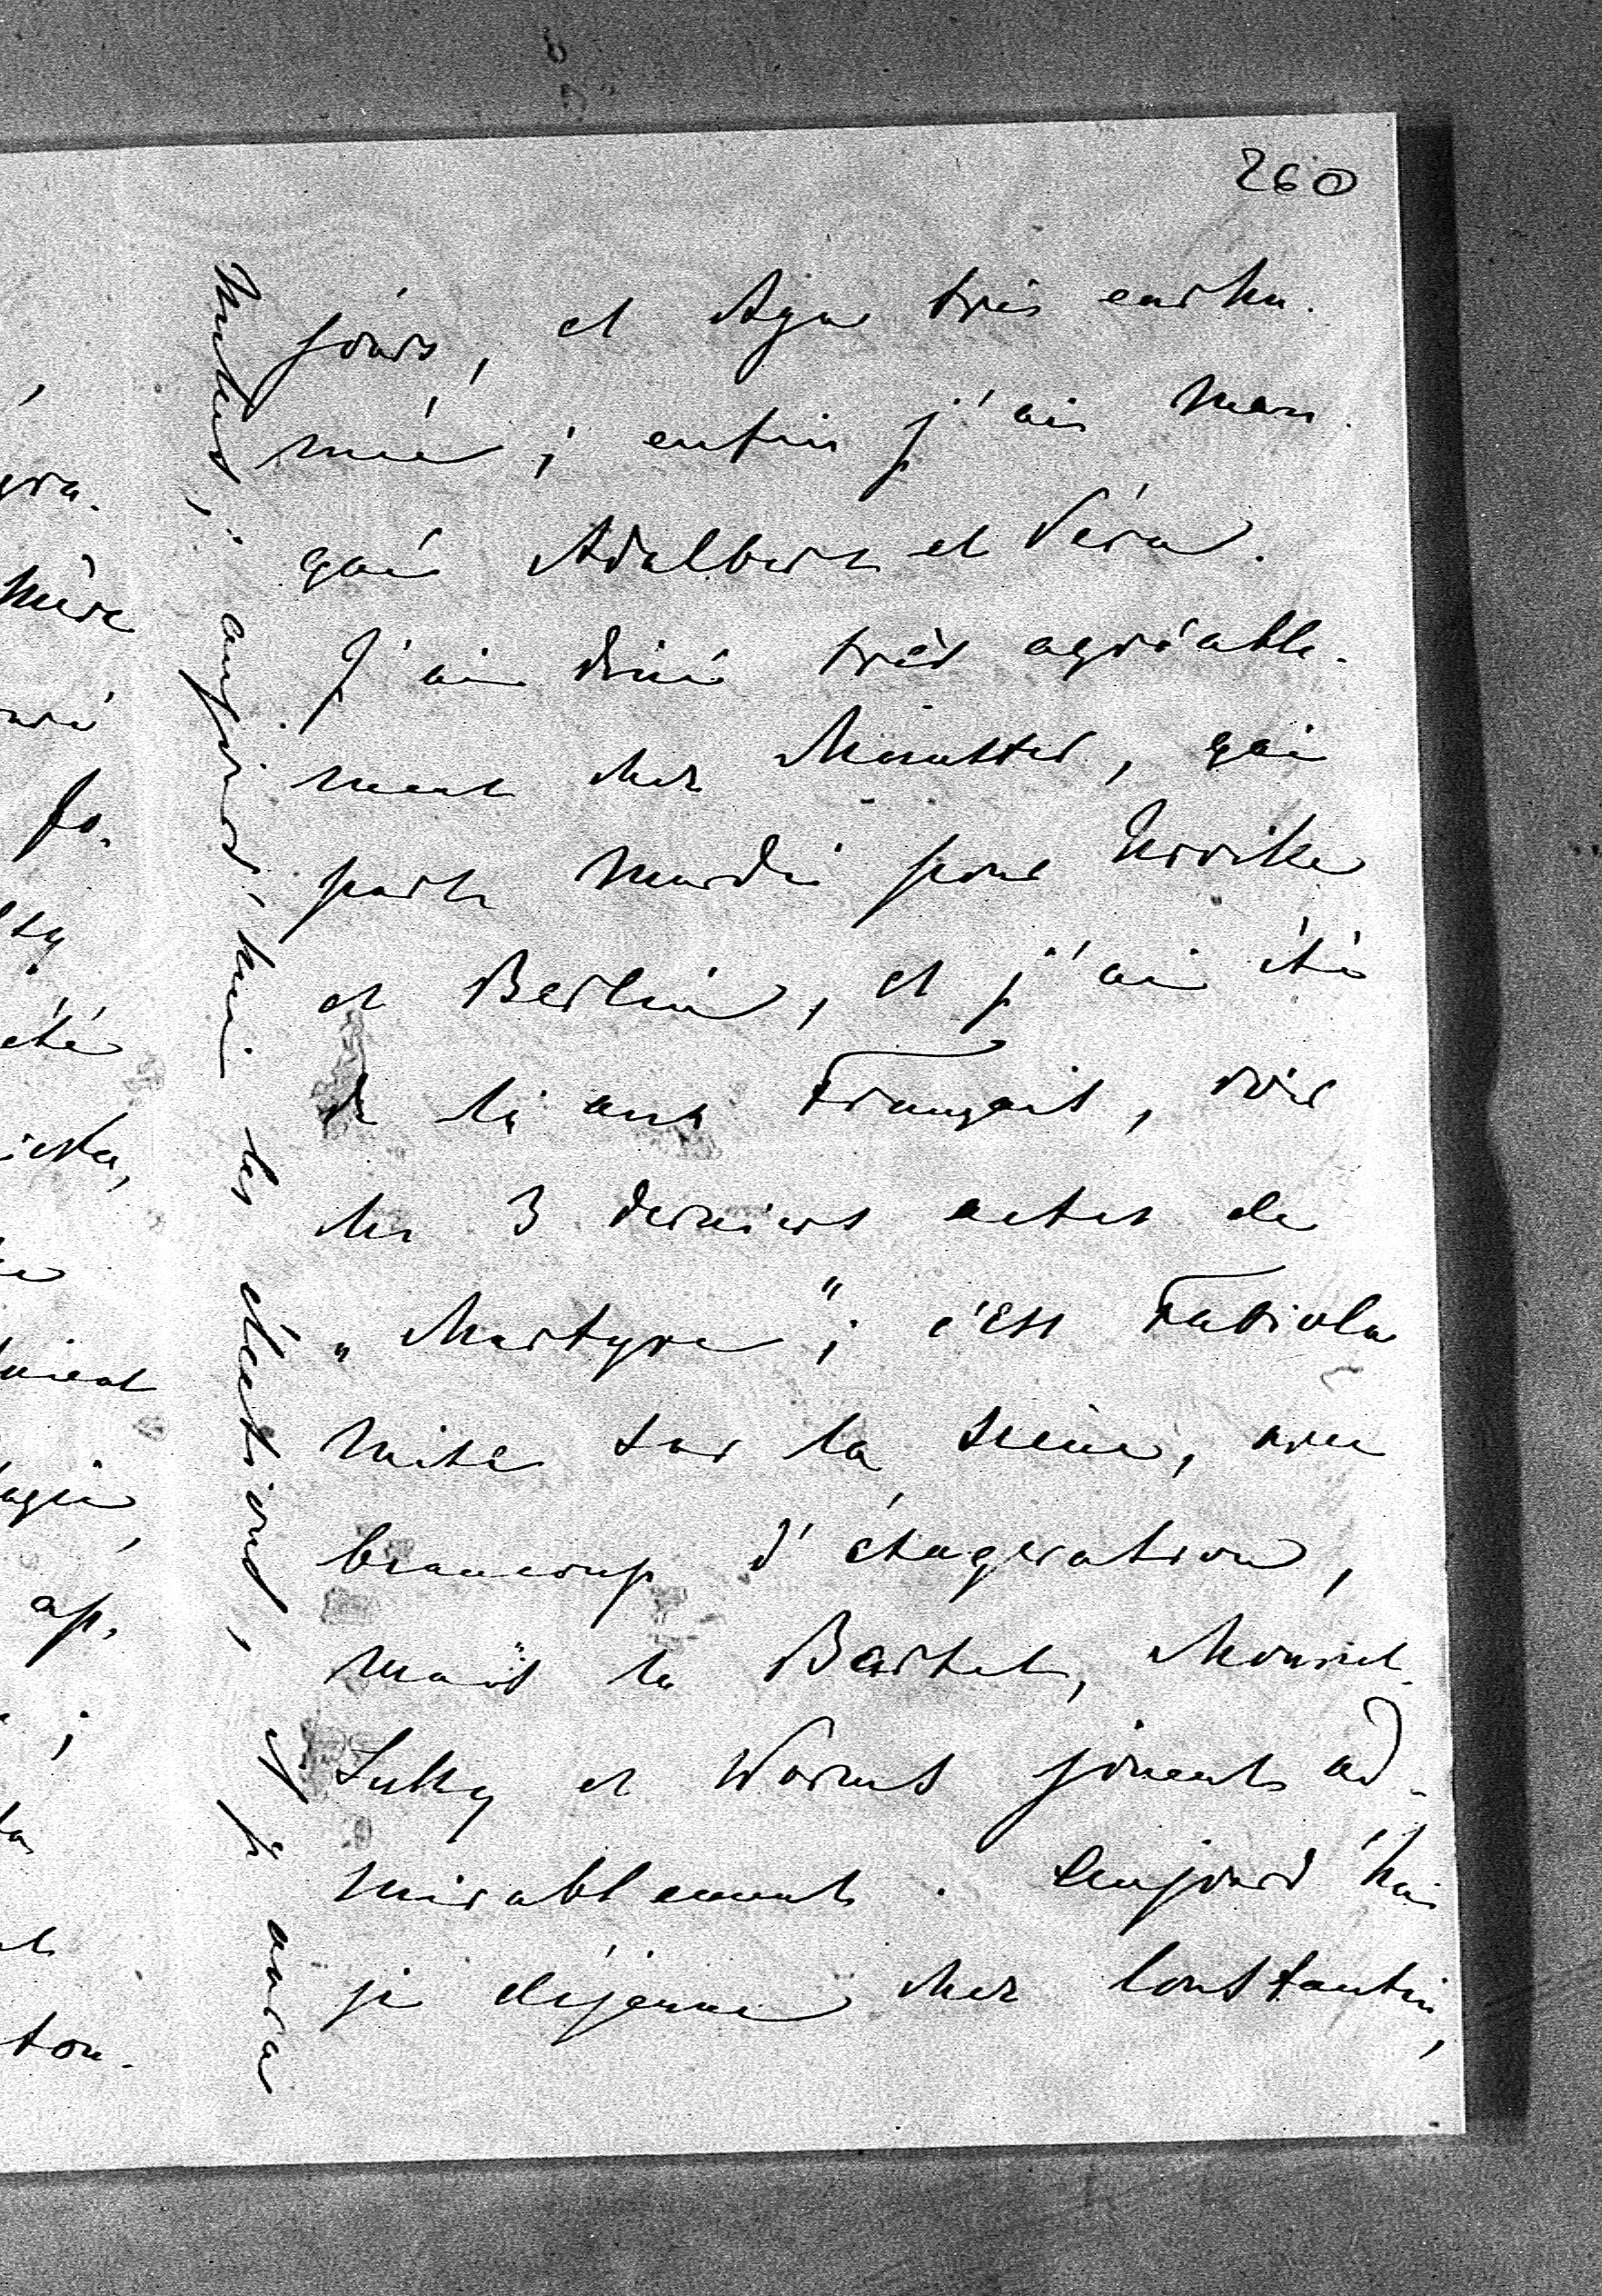 260
jours, et Aga très enrhu-
mée; enfin j'ai man-
qué Adalbert et Véra.
J'ai diné très agréable-
ment chez Münster, qui
part mardi pour
et Berlin, et j'ai été
de là aux Français, voir
les 3 derniers actes de
„Martyre"; c'est Fabiola
mise sur la scène, avec
beaucoup d'éxageration,
mais la Bartet, Mounet-
Sully et Worms jouent ad-
mirablement. Aujourd'hui
je déjeune chez Constantin,
aujourd'hui les élections, et je
gra-
mère
fo-
été
ap-
ton-